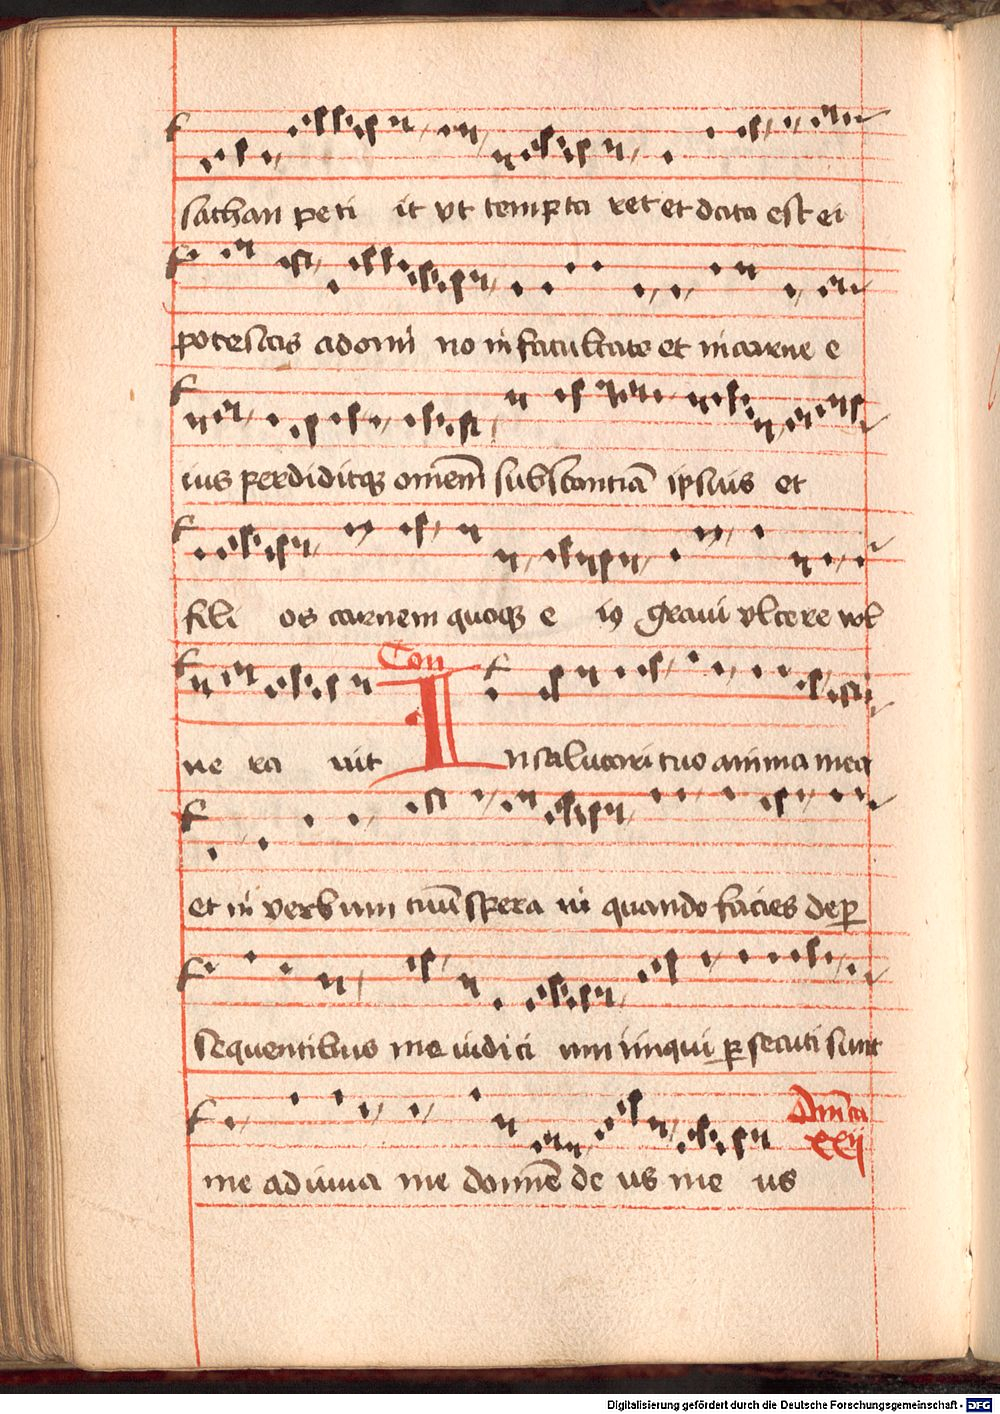 sathan peti it vt tempta ret et data est ei
potestas a domī no in facultate et in carne e
ius perdiditqꝫ omnem̄ substantiā ipsius et
fili os carnem quoqꝫ e iꝰ graui vlcere vul
Con
ne ra uit In salutari tuo anima mea
et in verbum tuū spera ui quando facies de ꝑ
sequentibus me iudici um iniqui ꝑsecuti sunt
me adiuua me domīe de us me us
Dnīca
xxij
Digitalisierung gefördert durch die Deutsche Forschungsgemeinschaft - DFG